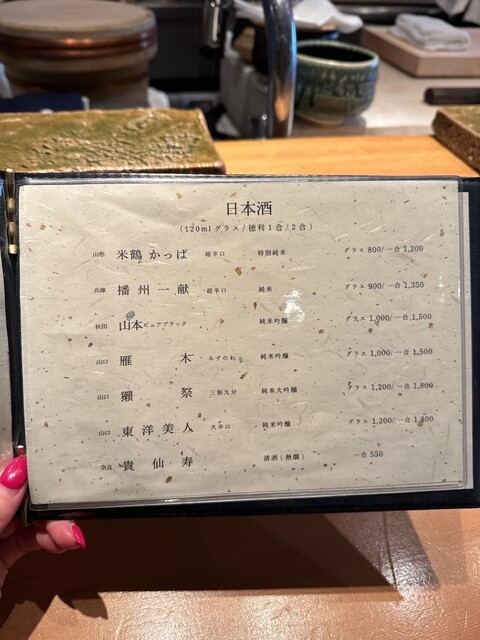 日本酒
(120mlグラス/徳利1合/2合)
山形 米鶴 かっぱ 超辛口 特別純米 グラス 800/一合 1,200
兵庫 播州一献 超辛口 純米 グラス 900/一合 1,350
秋田 山本ピュアブラック 純米吟醸 グラス 1,000/一合 1,500
山口 雁木 みずのわ 純米吟醸 グラス 1,000/一合 1,500
山口 獺祭 三割九分 純米大吟醸 グラス 1,200/一合 1,800
山口 東洋美人 大辛口 純米吟醸 グラス 1,200/一合 1,800
奈良 貴仙寿 清酒(熱燗) 一合 550